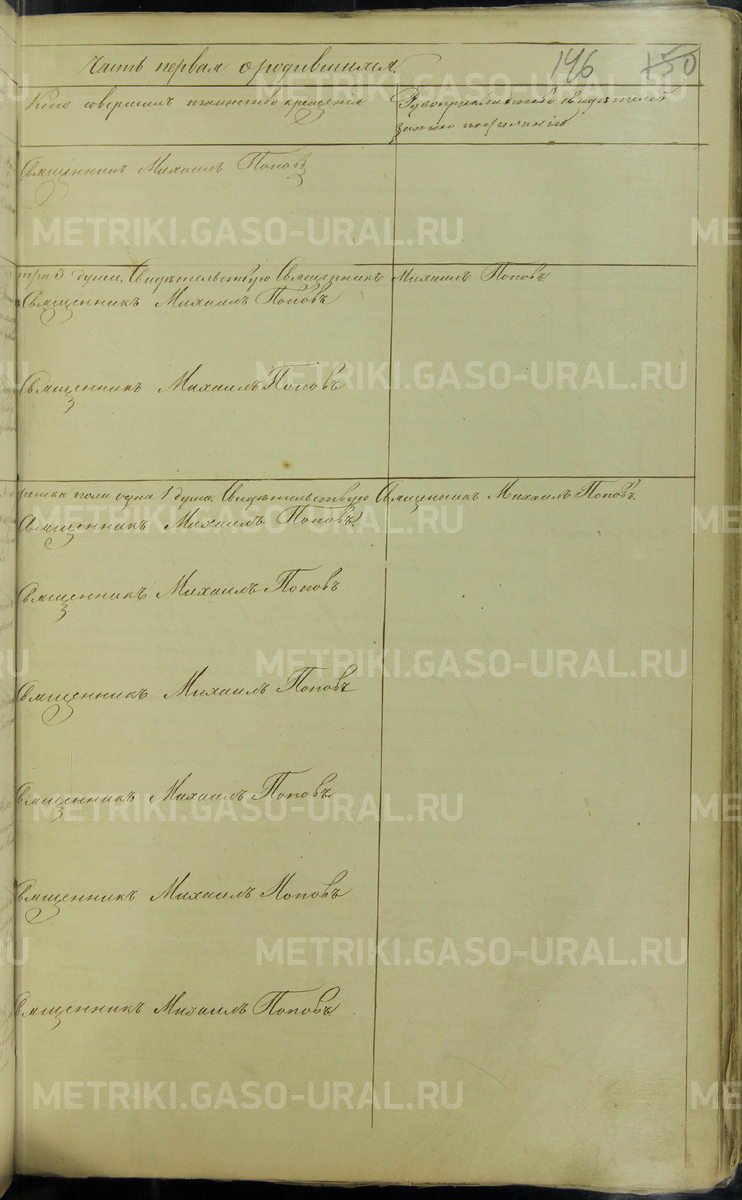 Часть первая о родившихся. 146 150
Кто совершалъ таинство крещенія
Рукоприкладство свидѣтелей
записи по желанію
Священникъ Михаилъ Поповъ
три 3 души. Свидѣтельствую Священникъ Михаилъ Поповъ
Священникъ Михаилъ Поповъ
Священникъ Михаилъ Поповъ
женска пола одна 1 душа. Свидѣтельствую Священникъ Михаилъ Поповъ
Священникъ Михаилъ Поповъ
Священникъ Михаилъ Поповъ
Священникъ Михаилъ Поповъ
Священникъ Михаилъ Поповъ
Священникъ Михаилъ Поповъ
Священникъ Михаилъ Поповъ
METRIKI.GASO-URAL.RU